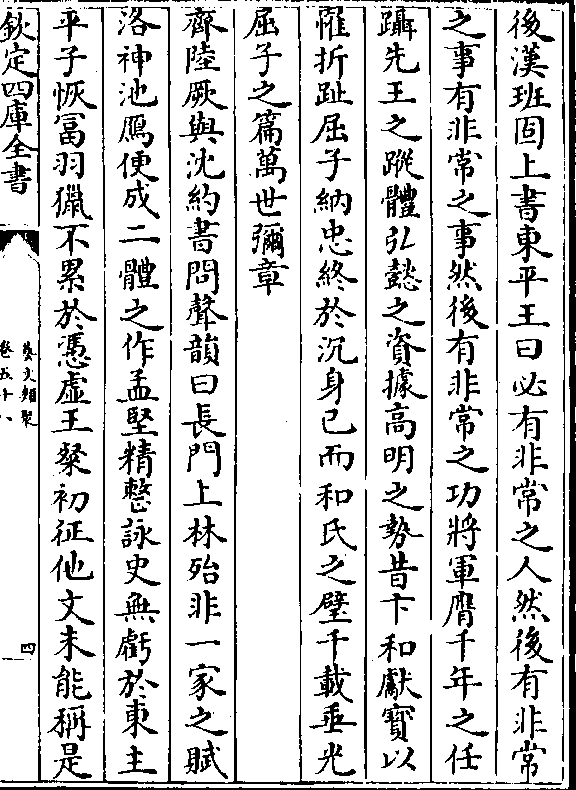 後漢班固上書東平王曰必有非常之人然後有非常
之事有非常之事然後有非常之功將軍膺千年之任
躡先王之蹤體弘懿之資據高明之勢昔卞和獻寶以
罹折趾屈子納忠終於沉身已而和氏之璧千載垂光
屈子之篇萬世彌章
齊陸厥與沈約書問聲韻曰長門上林殆非一家之賦
洛神池鴈便成二體之作孟堅精整詠史無虧於東主
平子恢冨羽獵不累於憑虛王粲初征他文未能稱是
欽定四庫全書
藝文類聚
卷五十八
四